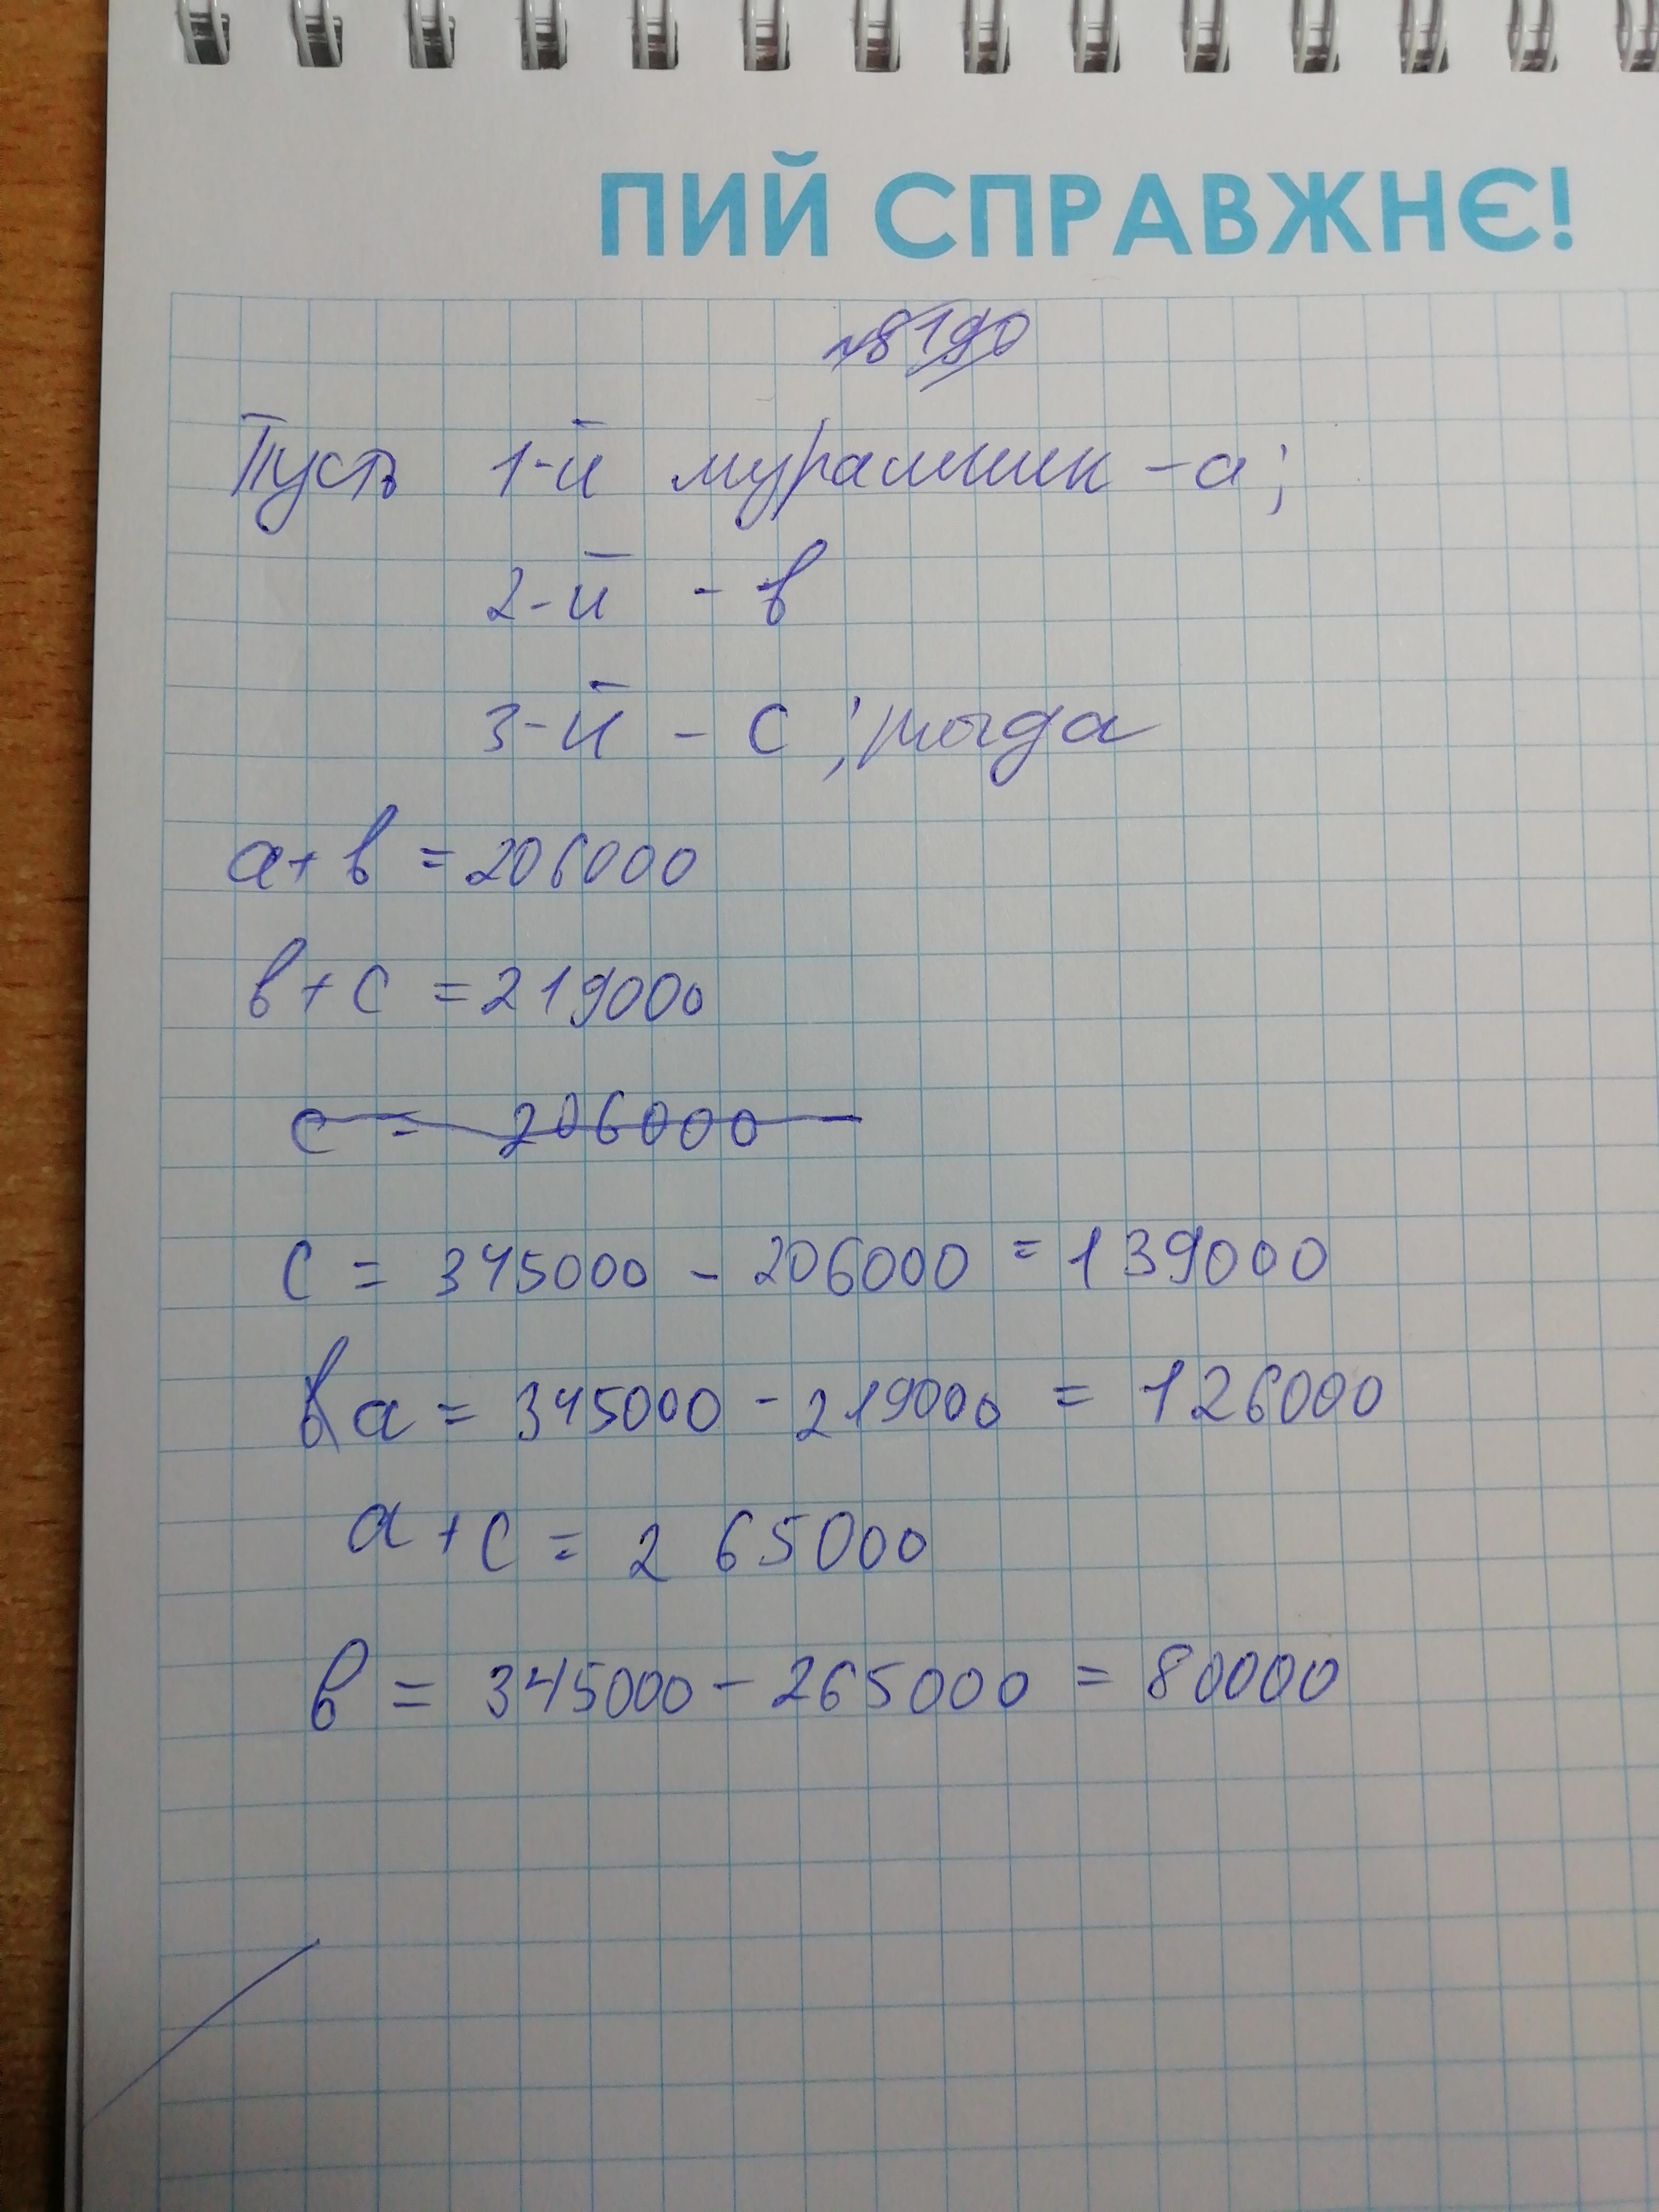 ПИЙ СПРАВЖНЄ!
№8190
Пусть 1-й мурашник - а;
2-й - в
3-й - с; тогда
а + в = 206000
в + с = 219000
с = 206000 -
с = 345000 - 206000 = 139000
в а = 345000 - 219000 = 126000
а + с = 265000
в = 345000 - 265000 = 80000